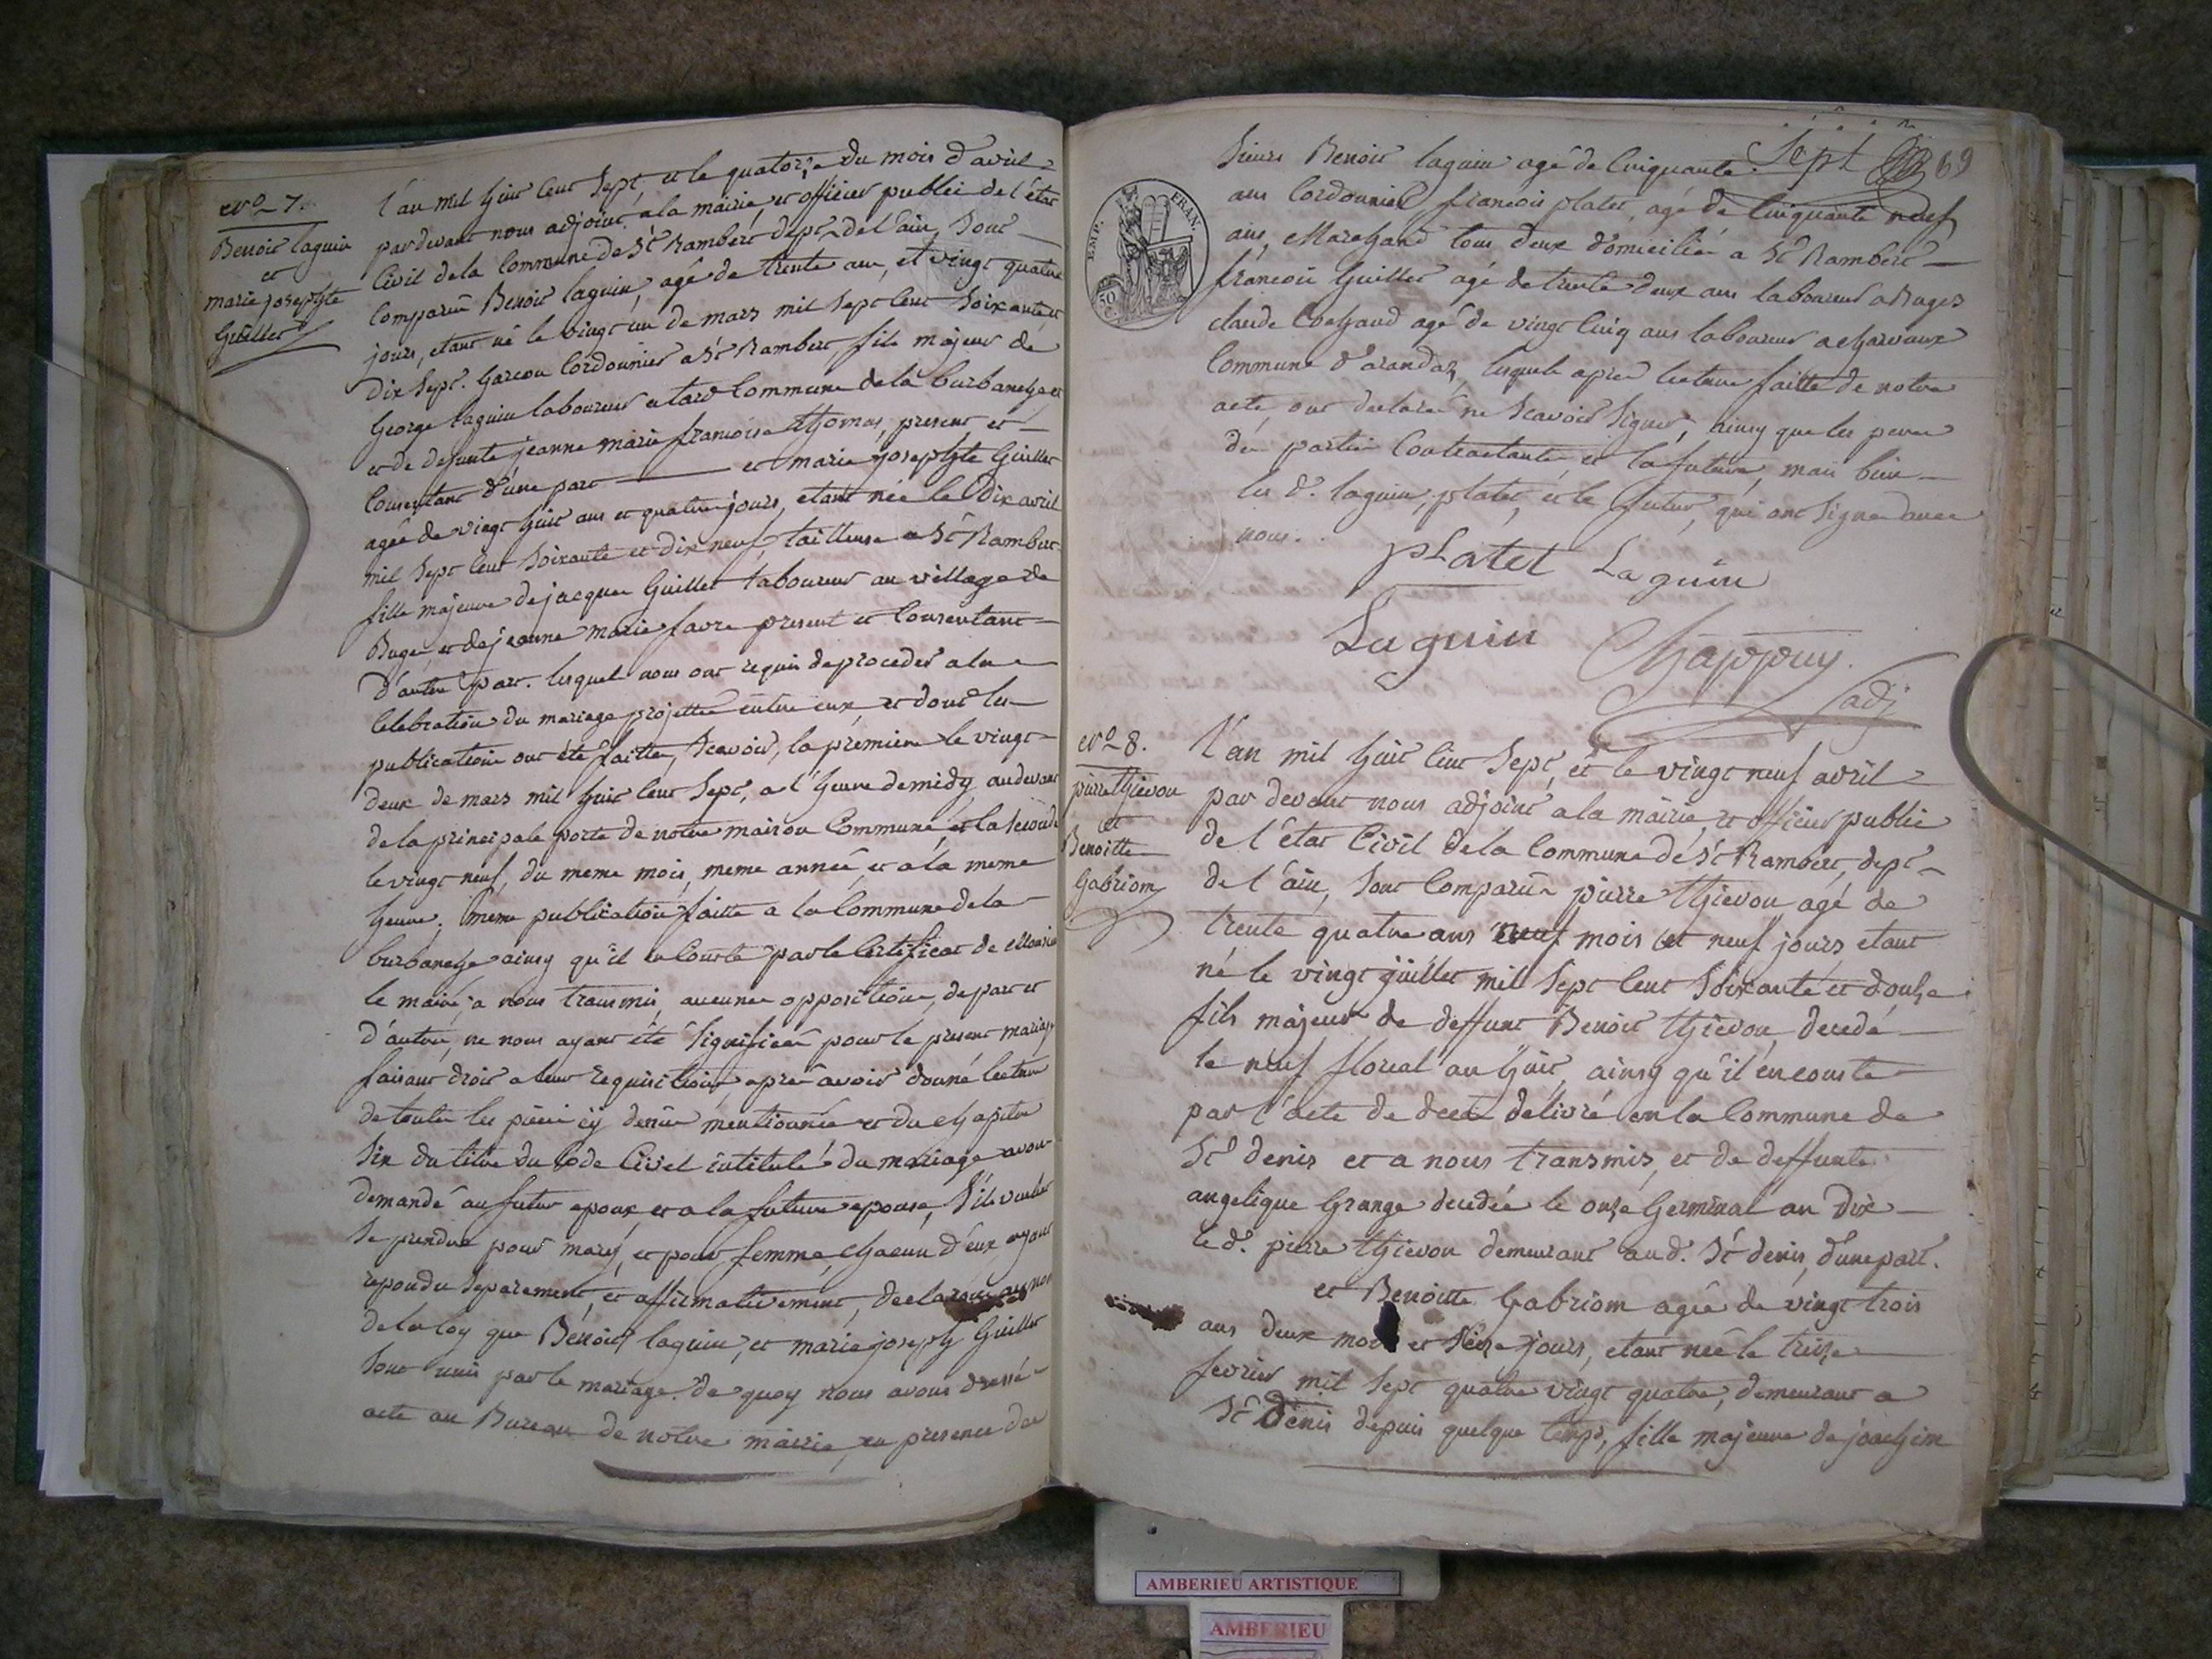 N° 7.
Benoit laguin
et
marie josephte
Guillet
l'an mil huit cent sept, et le quatorze du mois d'avril
pardevant nous adjoint a la mairie, et officier public de l'état
Civil de la Commune de St Rambert dept de l'ain, sont
Comparûs Benoit laguin, agé de trente ans, et vingt quatre
jours, etant né le vingt un de mars mil sept cent soixante et
dix sept. garcon Cordonnier a St Rambert, fils majeur de
George laguin laboureur a tard Commune de la burbanche, et
et de defunte jeanne marie francoise thomas, present et
Consentant d'une part et marie josephte Guillet
agée de vingt huit ans et quatre jours, etant née le dix avril
mil sept cent soixante et dix neuf, tailleuse a St Rambert
fille majeure de jacques Guillet laboureur au village de
Buges et de jeanne marie favre present et Consentant
d'autre part. lesquels nous ont requis de proceder a la
Celebration du mariage projetté entre eux, et dont les
publications ont été faittes, scavoir, la premiere le vingt
deux de mars mil huit cent sept, a l'heure de midy, au devant
de la principale porte de notre maison Commune, et la seconde
le vingt neuf, du meme mois, meme année, et a la meme
heure. meme publication faitte a la Commune de la
burbanche ainsy qu'il en Conste par le Certificat de Monsieur
le maire, a nous transmis, aucunes opposition, de part et
d'autre, ne nous ayant été signifiées pour le present mariage
faisant droit a leur requisition, aprés avoir donné lecture
de toutes les pieces cy dessus mentionnées et du chapitre
six du titre du Code Civil intitulé du mariage avons
demandé au futur epoux et a la future epouse, s'ils veulent
se prendre pour mary, et pour femme, chacun d'eux ayant
repondu separement, et affirmativement, declarons au nom
de la loy que Benoit laguin, et marie joseph Guillet
sont unis par le mariage. de quoy nous avons dressé
acte au Bureau de notre mairie, en presence de
Sept 69
EMP. FRAN.
50 c.
sieurs Benoit laguin agé de Cinquante
ans Cordonnier francois platet, agé de Cinquante neuf
ans, Marchand tous deux domiciliés a St Rambert
francois Guillet agé de trente deux ans laboureur a Buges
claude Cochand agé de vingt Cinq ans laboureur a charvaux
Commune d'arandas, lesquels après lecture faitte de notre
acte, ont declaré ne scavoir signer, ainsy que les peres
des parties Contractantes et la future, mais bien
les d. laguin, platet, et le futur, qui ont signé avec
nous.
platet Laguin
Laguin Chappuy.
adj
N° 8.
pierre thievon
et
Benoitte
Gabriom
l'an mil huit cent sept, et le vingt neuf avril
par devant nous adjoint a la mairie, et officier public
de l'état Civil de la Commune de St Rambert, dept
de l'ain, sont Comparûs pierre thievon agé de
trente quatre ans neuf mois et neuf jours etant
né le vingt juillet mil sept cent soixante et douze
fils majeur de deffunt Benoit thievon, decedé
le neuf floreal an huit, ainsy qu'il en conste
par l'acte de decé délivré en la Commune de
St denis et a nous transmis, et de deffunte
angelique Grange decedée le onze Germinal an dix
le d. pierre thievon demeurant au d. St denis, d'une part.
et Benoitte Gabriom agée de vingt trois
ans deux mois et seize jours, etant née le treize
fevrier mil sept quatre vingt quatre, demeurant a
St Denis depuis quelque temps, fille majeure de joachim
AMBERIEU ARTISTIQUE
AMBERIEU